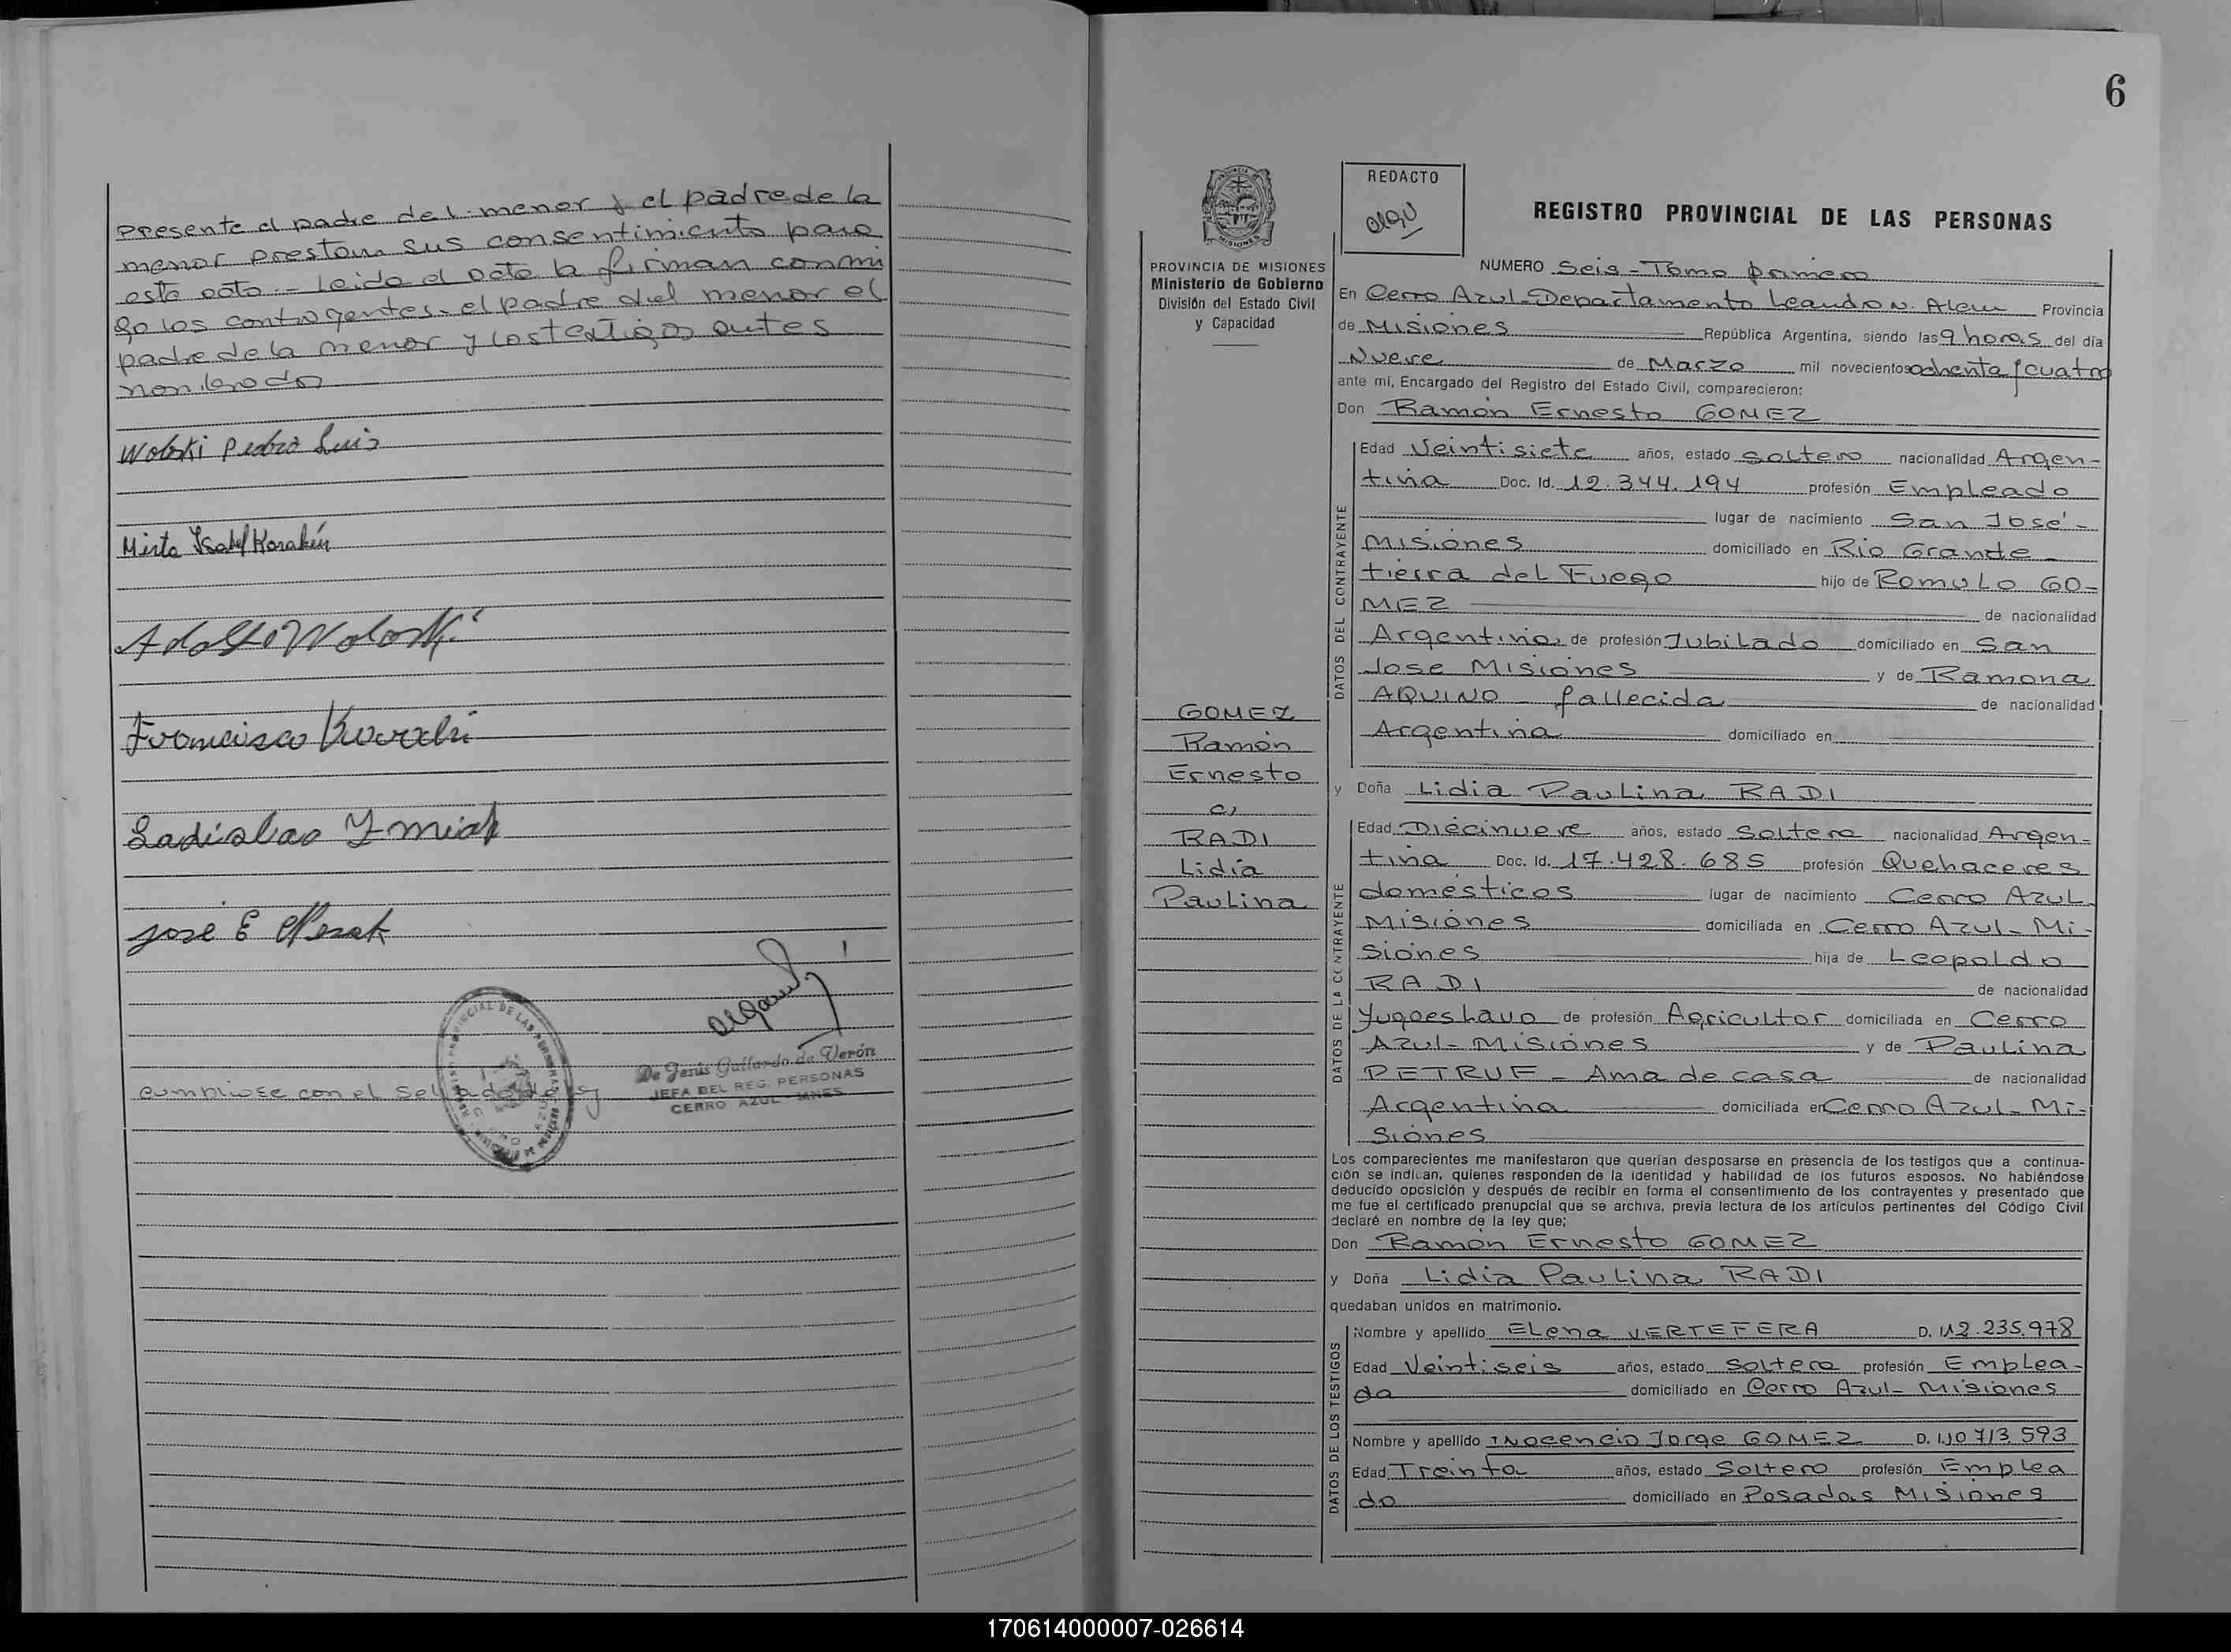 Presente el padre del menor y el padre de la
menor prestan sus consentimiento para
este acto.- Leido el acta la firman conmi
go los contrayentes, el padre del menor el
padre de la menor y los testigos antes
nombrados
Woloski Pedro Luis
Mirta Isabel
Adolfo Woloski
Francisco
Ladislao
José E
PROVINCIAL DE LAS PERSONAS
De Jesús Gallardo de Verón
JEFA DEL REG. PERSONAS
CERRO AZUL - MNES
cumpliose con el sellado de
6
PROVINCIA DE MISIONES
Ministerio de Gobierno
División del Estado Civil
y Capacidad
GOMEZ
Ramón
Ernesto
c/
RADI
Lidia
Paulina
REDACTO
REGISTRO PROVINCIAL DE LAS PERSONAS
NUMERO Seis - Tomo primero
En Cerro Azul - Departamento Leandro N. Alem Provincia
de Misiones República Argentina, siendo las 9 horas del día
Nueve de Marzo mil novecientos ochenta y cuatro
ante mi, Encargado del Registro del Estado Civil, comparecieron:
Don Ramón Ernesto GOMEZ
DATOS DEL CONTRAYENTE
Edad Veintisiete años, estado soltero nacionalidad Argen-
tina Doc. Id. 12.344.194 profesión Empleado
lugar de nacimiento San José -
Misiones domiciliado en Rio Grande
tierra del Fuego hijo de Romulo GO-
MEZ de nacionalidad
Argentina de profesión Jubilado domiciliado en San
Jose Misiones y de Ramona
AQUINO fallecida de nacionalidad
Argentina domiciliado en
y Doña Lidia Paulina RADI
DATOS DE LA CONTRAYENTE
Edad Diecinueve años, estado Soltera nacionalidad Argen-
tina Doc. Id. 17.428.685 profesión Quehaceres
domésticos lugar de nacimiento Cerro Azul
Misiones domiciliada en Cerro Azul - Mi-
siones hija de Leopoldo
RADI de nacionalidad
Yugoeslavo de profesión Agricultor domiciliada en Cerro
Azul - Misiones y de Paulina
PETRUF - Ama de casa de nacionalidad
Argentina domiciliada en Cerro Azul - Mi-
siones
Los comparecientes me manifestaron que querían desposarse en presencia de los testigos que a continua-
ción se indican, quienes responden de la identidad y habilidad de los futuros esposos. No habiéndose
deducido oposición y después de recibir en forma el consentimiento de los contrayentes y presentado que
me fue el certificado prenupcial que se archiva, previa lectura de los artículos pertinentes del Código Civil
declaré en nombre de la ley que;
Don Ramón Ernesto GOMEZ
y Doña Lidia Paulina RADI
quedaban unidos en matrimonio.
DATOS DE LOS TESTIGOS
Nombre y apellido Elena VERTEFERA D. I. 12.235.978
Edad Veintiseis años, estado Soltera profesión Emplea-
da domiciliado en Cerro Azul - Misiones
Nombre y apellido Inocencio Jorge GOMEZ D. I. 10 713 593
Edad Treinta años, estado Soltero profesión Emplea
do domiciliado en Posadas Misiones
170614000007-026614